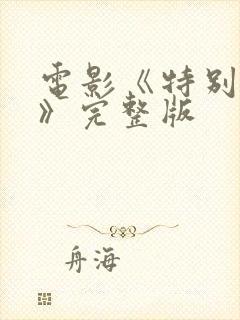 電影《特别
》完整版
舟海